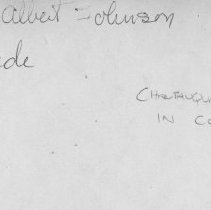 Albert Johnson
de
CHAUTAUQU
IN CO